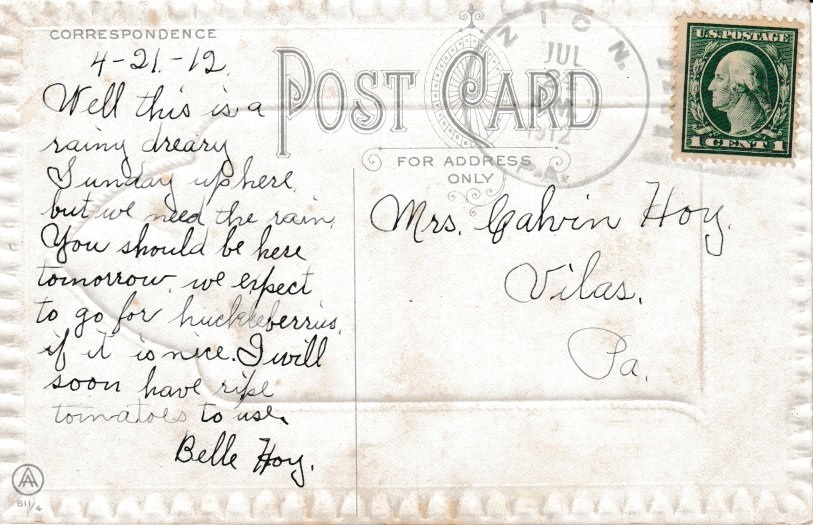 CORRESPONDENCE
4-21.-12.
Well this is a
rainy dreary
Sunday up here,
but we need the rain,
You should be here
tomorrow, we expect
to go for huckleberries,
if it is nice. I will
soon have ripe
tomatoes to use.
Belle Hoy.
POST CARD
FOR ADDRESS
ONLY
ZION.
JUL
1912
PA.
U.S. POSTAGE
1 CENT 1
Mrs. Calvin Hoy.
Vilas.
Pa.
AA
611/4